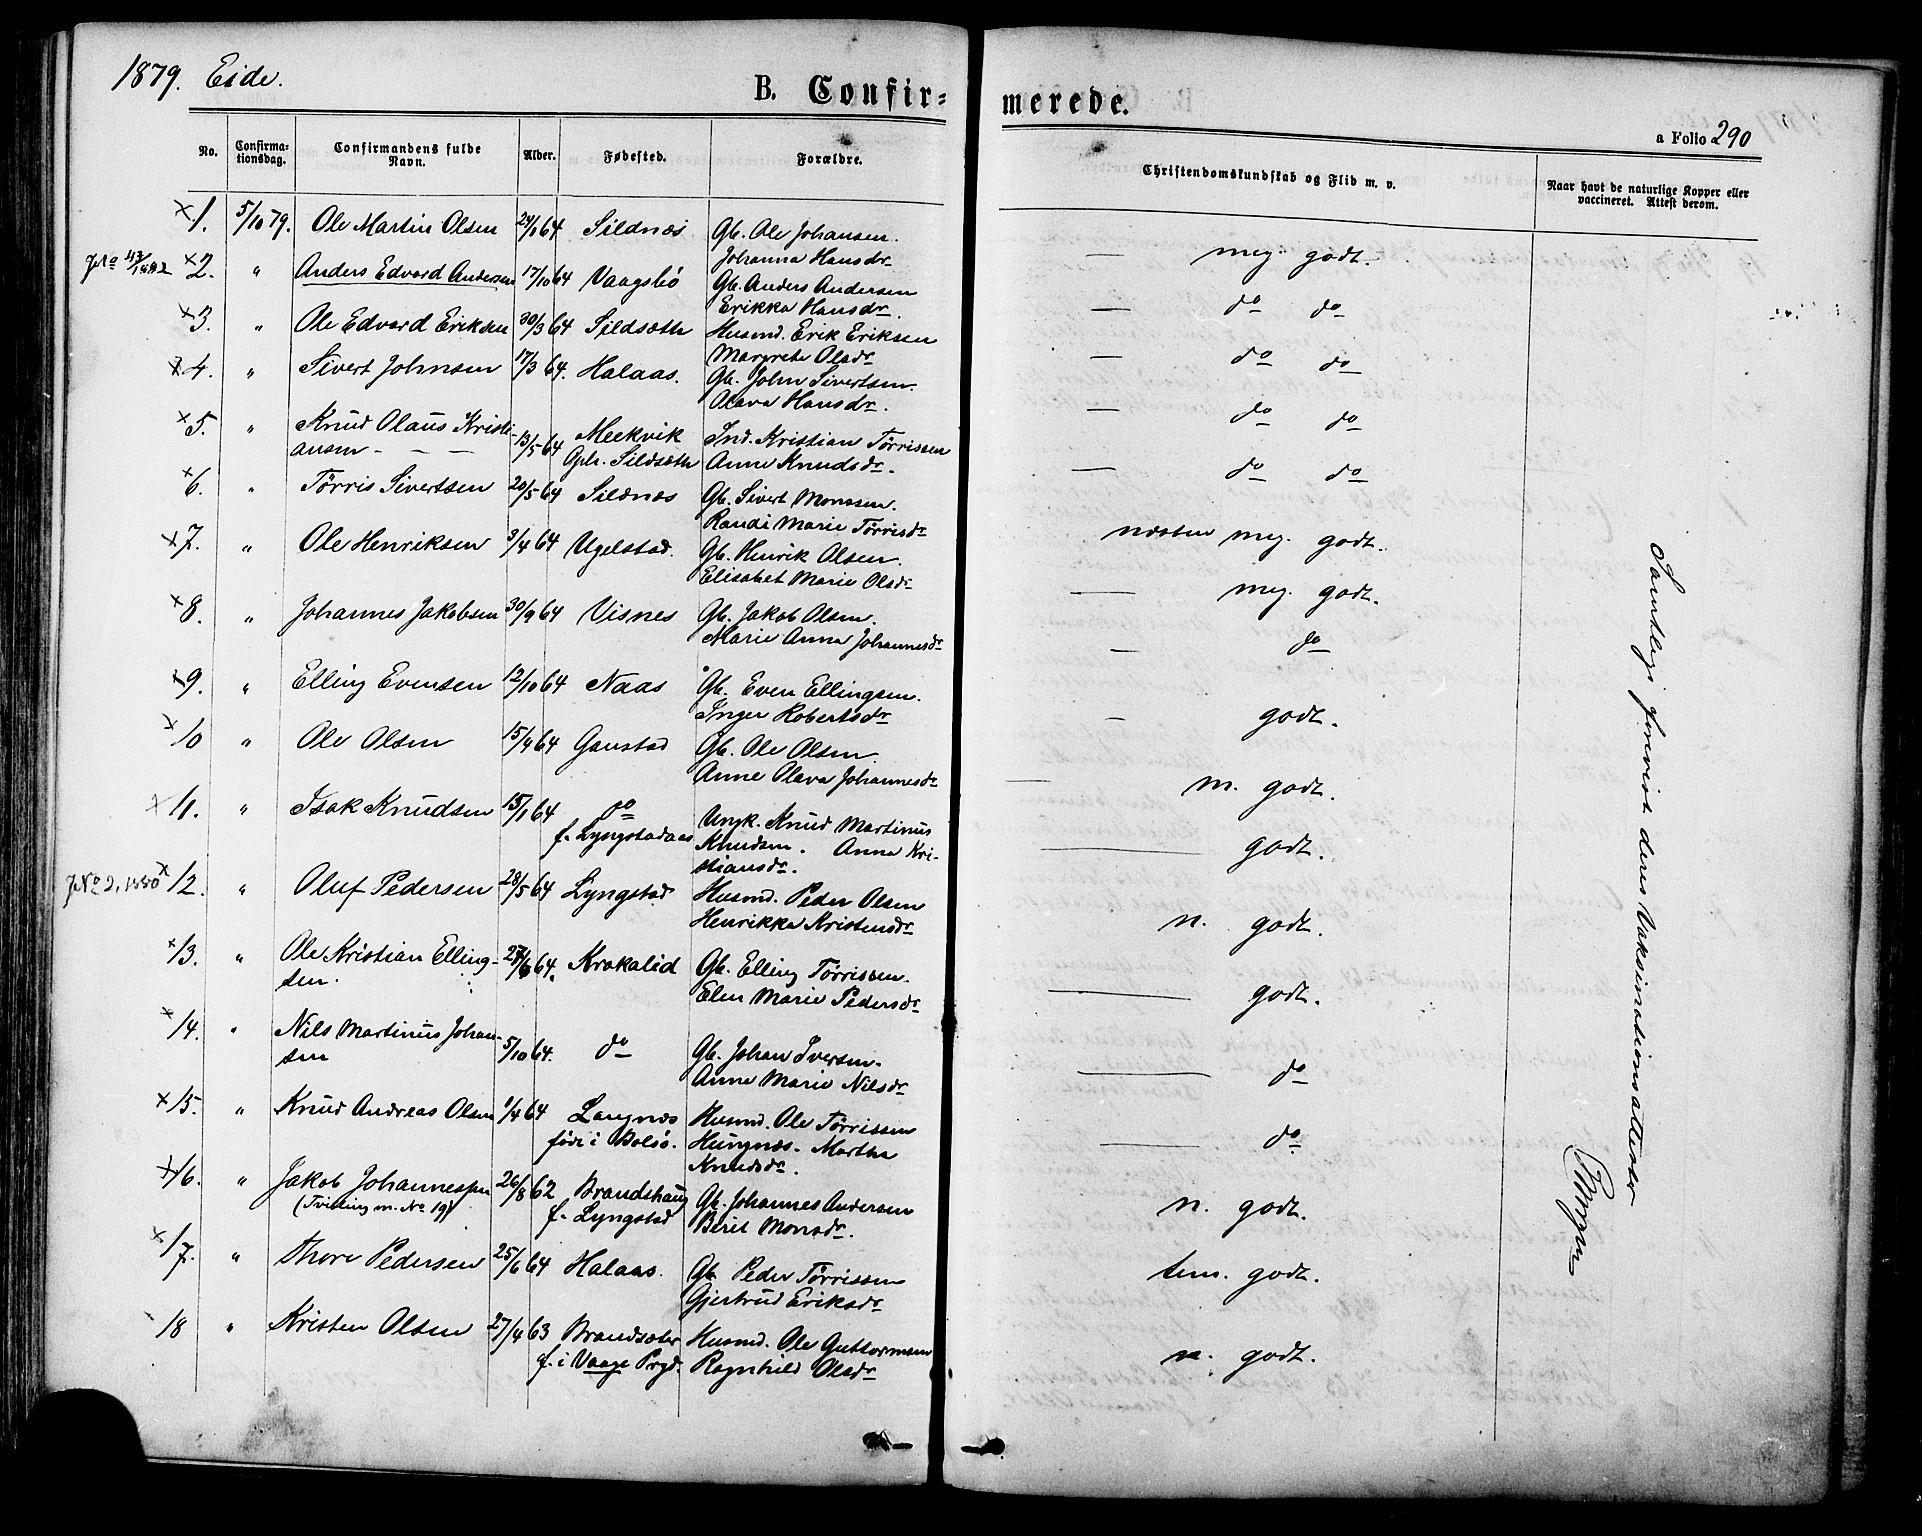 1879. Eide.
B. Confir=
merede.
a Folio 290
No. Confirma-tionsdag. Confirmandens fulde Navn. Alder. Fødested. Forældre. Christendomskundskab og Flid m. v. Naar havt de naturlige Kopper eller vaccineret. Attest derom.
×1. 5/10 79. Ole Martin Olsen 24/1 64 Sildnæs Gb. Ole Johansen.
Johanna Hansdr — meg. godt.
×2. " Anders Edvard Andersen 17/10 64 Vaagsbø Gb. Anders Andersen
Erikka Hansdr. — do do
×3. " Ole Edvard Eriksen 30/3 64 Sildsæth Husmd. Erik Eriksen
Margrete Olsdr — do do
×4. " Sivert Johnsen 17/3 64. Halaas. Gb. John Sivertsen.
Olava Hansdr. — do do
×5. " Knud Olaus Kristi-
ansen - — — 13/5 64 Meekvik Oph. Sildsæth Ind. Kristian Tørrissen
Anne Knudsdr. — do do
×6. " Tørris Sivertsen 20/5 64 Sildnæs Gb. Sivert Monssen.
Randi Marie Tørrisdr næsten meg. godt.
×7. " Ole Henriksen 3/4 64 Ugelstad. Gb. Henrik Olsen.
Elisabet Marie Olsdr — meg. godt.
×8. " Johannes Jakobsen 30/9 64 Visnes Gb. Jakob Olsen.
Marie Anna Johannesdr — do
×9. " Elling Evensen 12/10 64 Naas Gb. Even Ellingsen.
Inger Robertsdr — godt.
×10 " Ole Olsen 15/4 64 Gaustad Gb. Ole Olsen.
Anne Olava Johannesdr — m. godt.
×11. " Isak Knudsen 15/1 64 do
f. Lyngstadaas Ungk. Knud Martinus
Knudsen. Anna Kri-
stiansdr. — godt.
×12. " Oluf Pedersen 28/5 64 Lyngstad Husmd. Peder Olsen
Henrikka Kristensdr n. godt.
×13. " Ole Kristian Elling-
sen. 64. Krakalid Gb. Elling Tørrissen.
Elen Marie Pedersdr — godt.
×14. " Nils Martinus Johan-
sen 5/10 64. do Gb. Johan Iversen.
Anne Marie Nilsdr — do
×15. " Knud Andreas Olsen 1/4 64 Langnæs
født i Bolsø. Husmd. Ole Tørrissen
Hungnæs. Martha
Knudsdr. — do
×16. " Jakob Johannessen
(Tvilling m. No 19) 26/8 62 Brandshaug
f. Lyngstad Gb. Johannes Andersen
Berit Monsdr. n. godt.
×17. " Thore Pedersen 25/6 64 Halaas. Gb. Peder Tørrissen
Gjertrud Eriksdr tem. godt.
18 " Kristen Olsen 27/4 63 Brandsæter
f. i Vaage Prgd. Husmd. Ole Guttormsen
Ragnhild Olsdr n. godt.
Samtlige forevist deres Vaksinationsattester